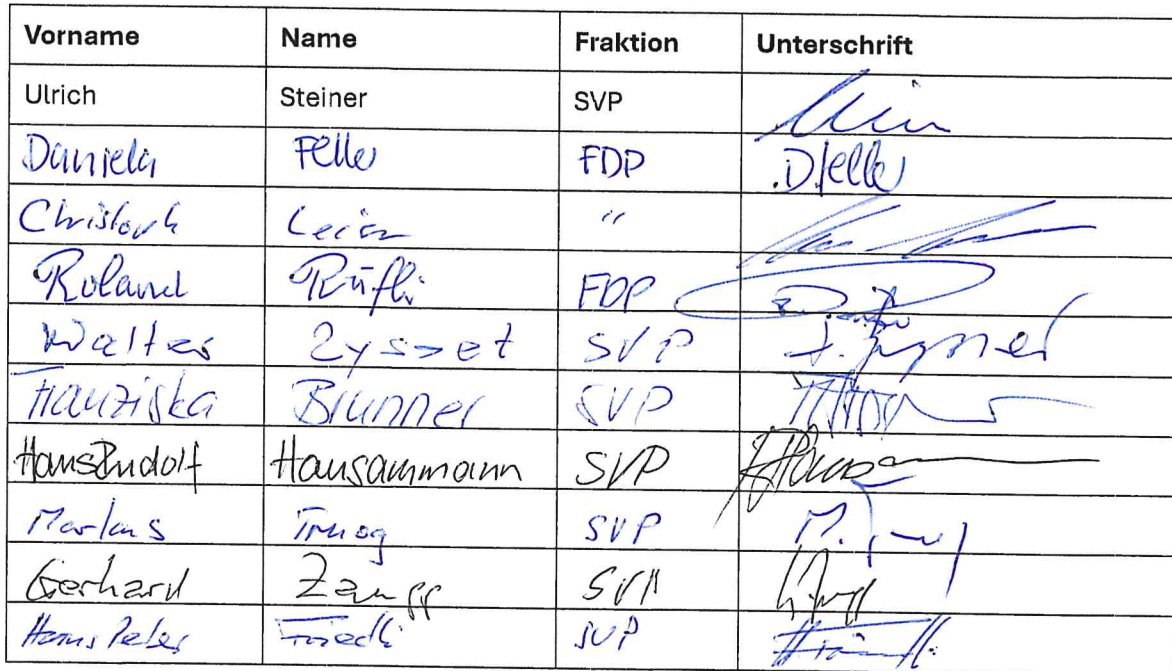 Vorname Name Fraktion Unterschrift
Ulrich Steiner SVP
Daniela Feller FDP D. Feller
Christoph "
Roland Rüfli FDP
Walter Zysset SVP
Franziska Brunner SVP
HansRudolf Hausammann SVP
Markus Truog SVP
Gerhard Zaugg SVP
Hans Peter Friedli SVP